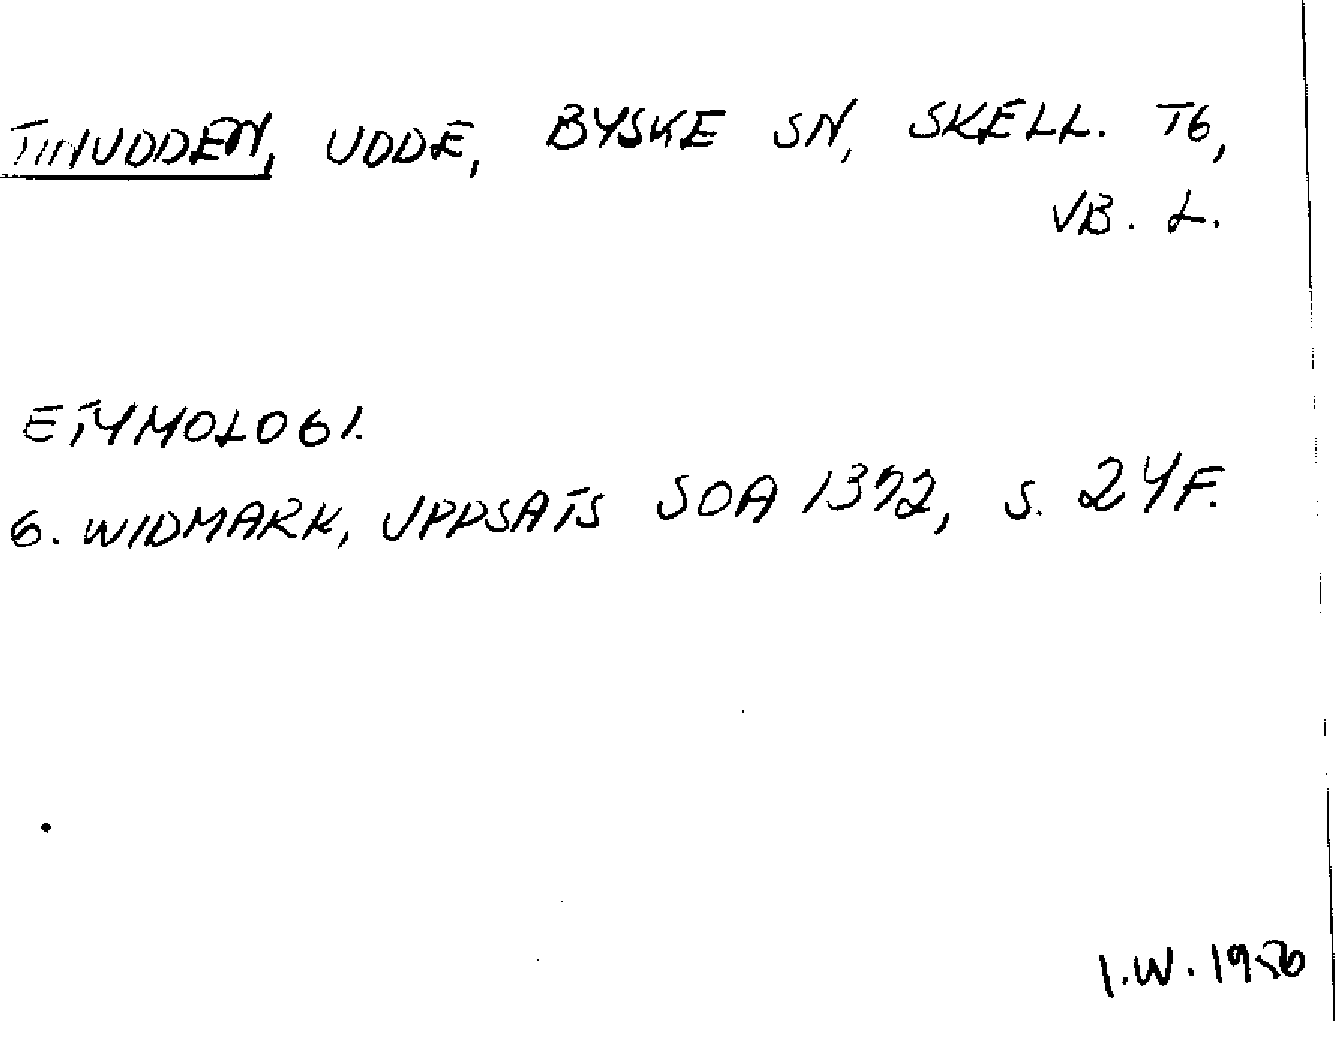 TINUDDEN, UDDE, BYSKE SN, SKELL. TG,
VB. L.
ETYMOLOGI.
G. WIDMARK, UPPSATS SOA 1372, S. 24F.
I.W. 1956